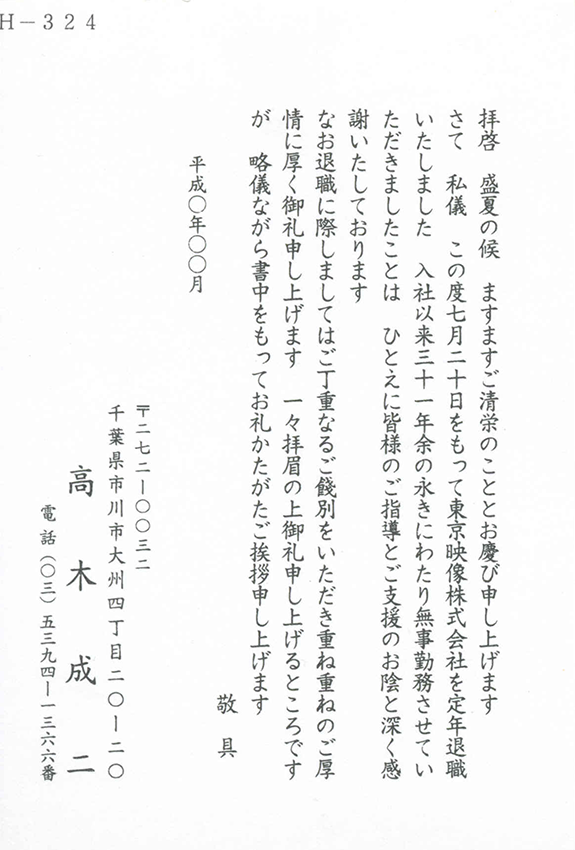 H－324
拝啓　盛夏の候　ますますご清栄のこととお慶び申し上げます
さて　私儀　この度七月二十日をもって東京映像株式会社を定年退職
いたしました　入社以来三十一年余の永きにわたり無事勤務させてい
ただきましたことは　ひとえに皆様のご指導とご支援のお陰と深く感
謝いたしております
なお退職に際しましてはご丁重なるご餞別をいただき重ね重ねのご厚
情に厚く御礼申し上げます　一々拝眉の上御礼申し上げるところです
が　略儀ながら書中をもってお礼かたがたご挨拶申し上げます
敬具
平成〇年〇〇月
〒二七二―〇〇三二
千葉県市川市大州四丁目二〇―二〇
高木成二
電話（〇三）五三九四―一三六六番